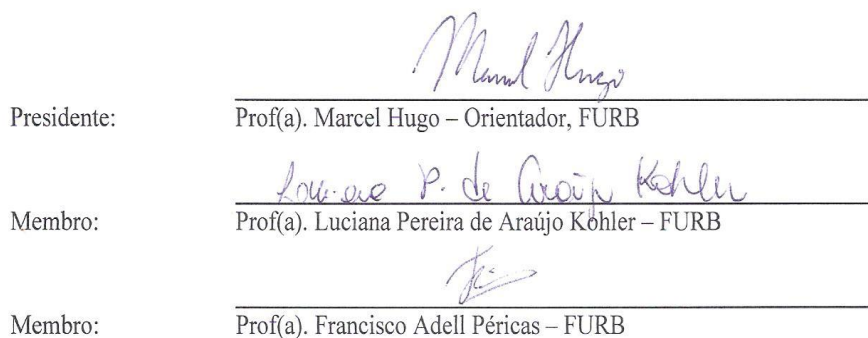 Marcel Hugo
Presidente: Prof(a). Marcel Hugo – Orientador, FURB
P. de Araújo Kohler
Membro: Prof(a). Luciana Pereira de Araújo Kohler – FURB
Membro: Prof(a). Francisco Adell Péricas – FURB